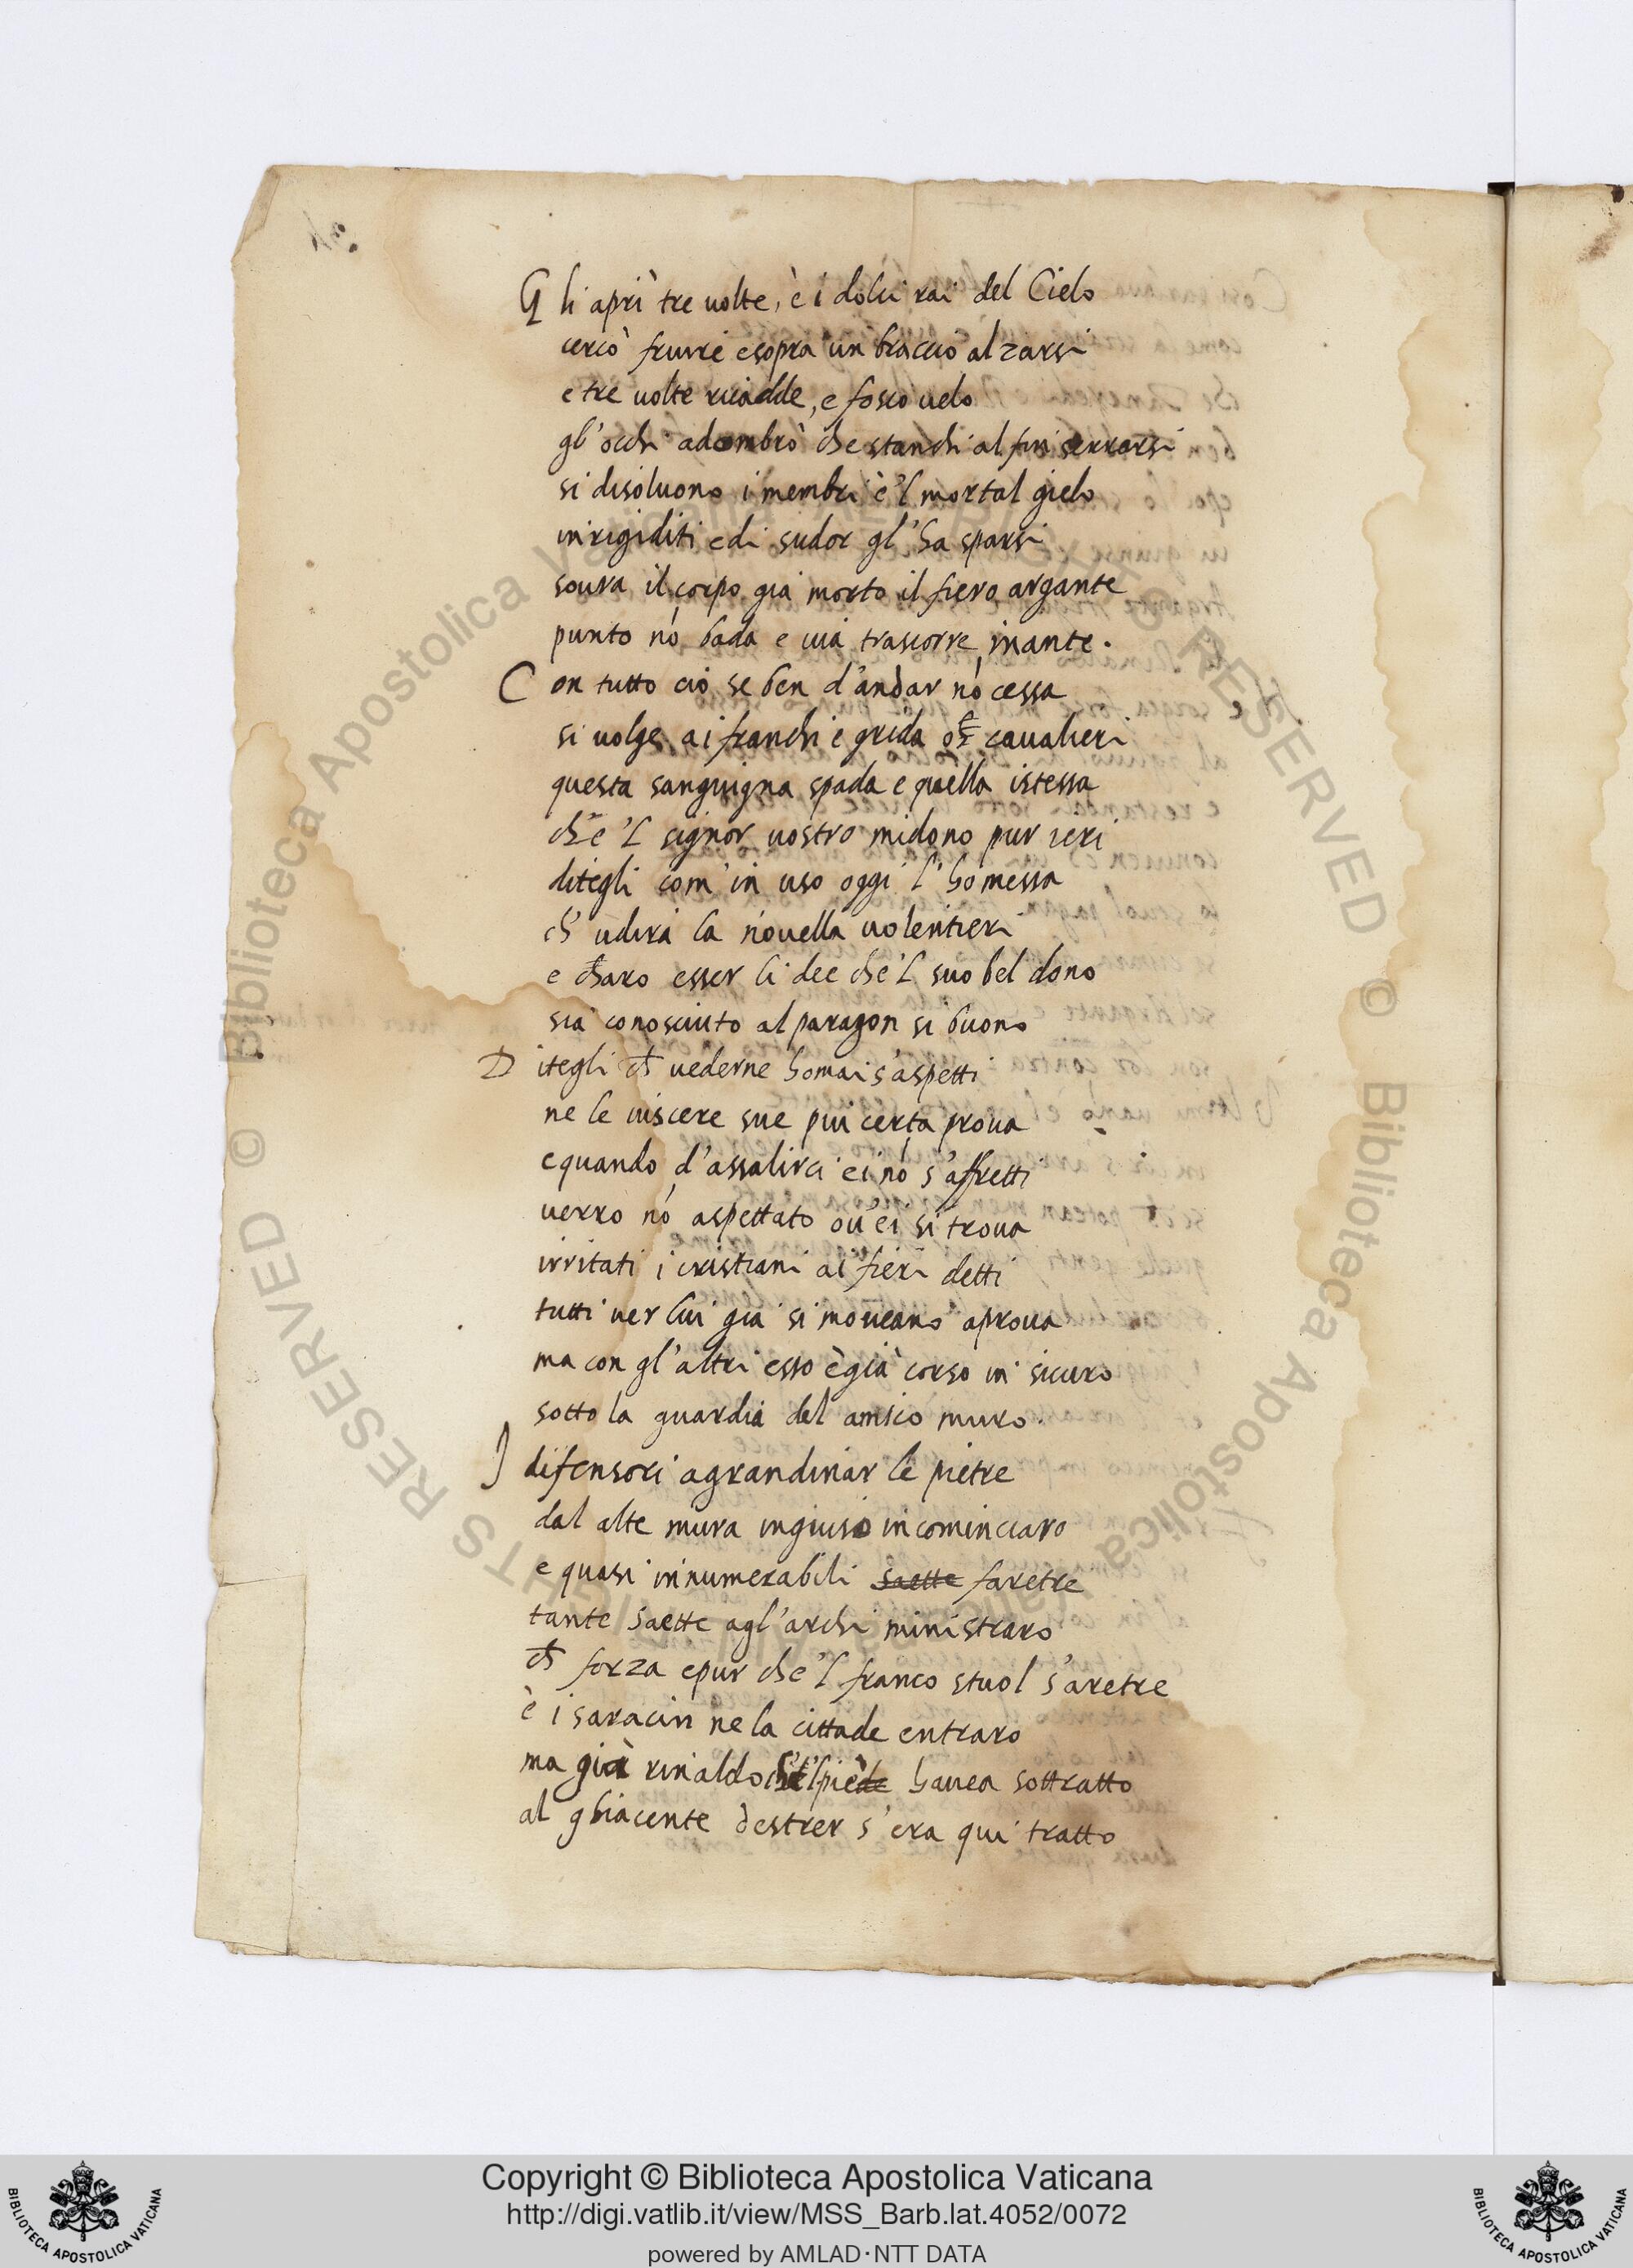 Gli aprì tre uolte, è i dolci rai del Cielo
cercò fruire e sopra un braccio alzarsi
e tre uolte ricadde, e fosco uelo
gl'occhi adombrò che stanchi al fin serrarsi
si disoluono i membri è 'l mortal gielo
inrigiditi e di sudor gl'ha sparsi
soura il corpo già morto il fiero argante
punto nō bada e uia trascorre inante.
Con tutto ciò se ben d'andar nō cessa
si uolge ai franchi e grida cavalieri
questa sanguigna spada e quella istessa
ch̄e 'l signor uostro mi dono pur ieri
ditegli com' in uso oggi l'ho messa
ch' udirà la nouella uolentieri
e charo esser li dee che 'l suo bel dono
sia conosciuto al paragon si buono
Ditegli ch̄ uederne homai s'aspetti
ne le uiscere sue piu certa proua
e quando d'assalirci ei nō s'affretti
uerro nō aspettato ou'ei si troua
irritati i cristiani ai fieri detti
tutti uer lui già si moueano aproua
ma con gl'altri esso è già corso in sicuro
sotto la guardia del amico muro.
I difensori a grandinar le pietre
dal alte mura ingiuso incominciaro
e quasi innumerabili saette faretre
tante saette agl'archi ministraro
ch̄ forza e pur che 'l franco stuol s'aretre
è i saracin ne la cittade entraro
ma già rinaldo piède hauea sottratto
al ghiacente destrer s'era qui tratto
© Biblioteca Apostolica Vaticana ALL RIGHTS RESERVED
© Biblioteca Apostolica Vaticana ALL RIGHTS RESERVED
Copyright © Biblioteca Apostolica Vaticana
http://digi.vatlib.it/view/MSS_Barb.lat.4052/0072
powered by AMLAD·NTT DATA
BIBLIOTECA APOSTOLICA VATICANA
BIBLIOTECA APOSTOLICA VATICANA